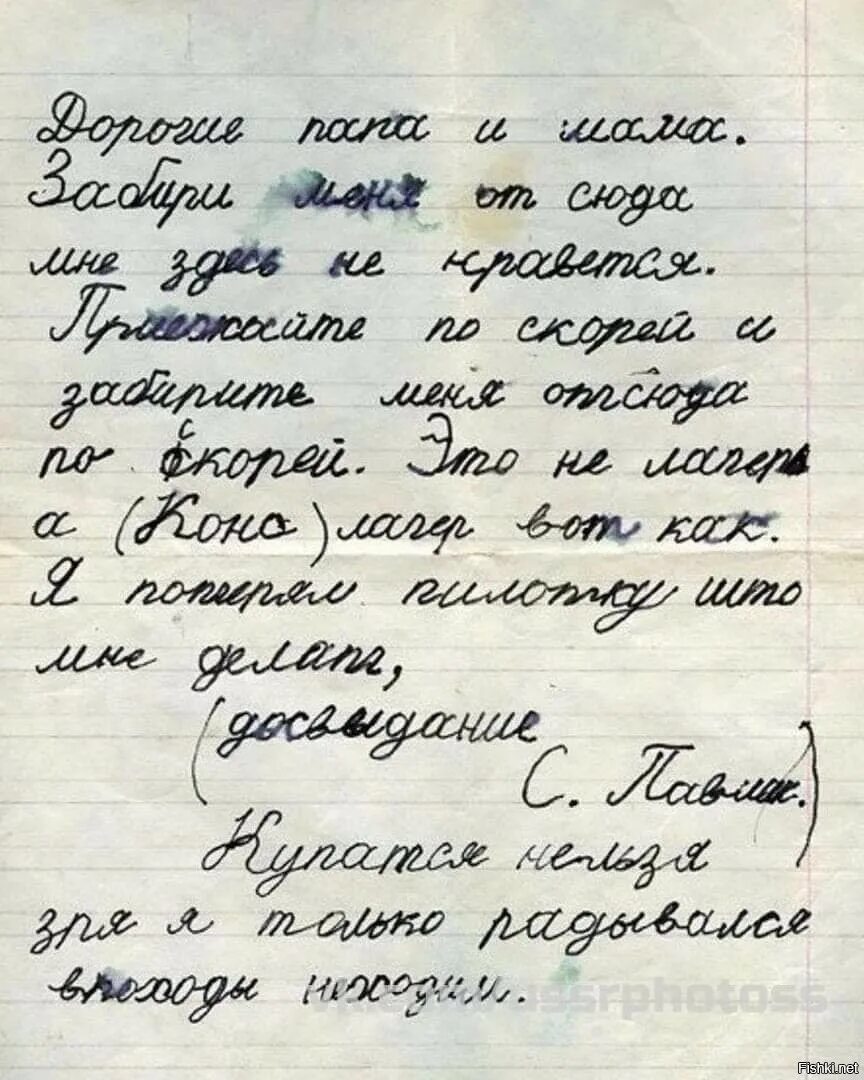 Дорогие папа и мама.
Забири меня от сюда
мне здесь не нравется.
Приезжайте по скорей и
забирите меня отсюда
по скорей. Это не лагерь
а (Конс) лагер вот как.
Я потерял пилотку што
мне делать,
(досвыдание
С. Павлик.)
Купатся нельзя
зря я только радывался
впоходы неходим.
Fishki.net